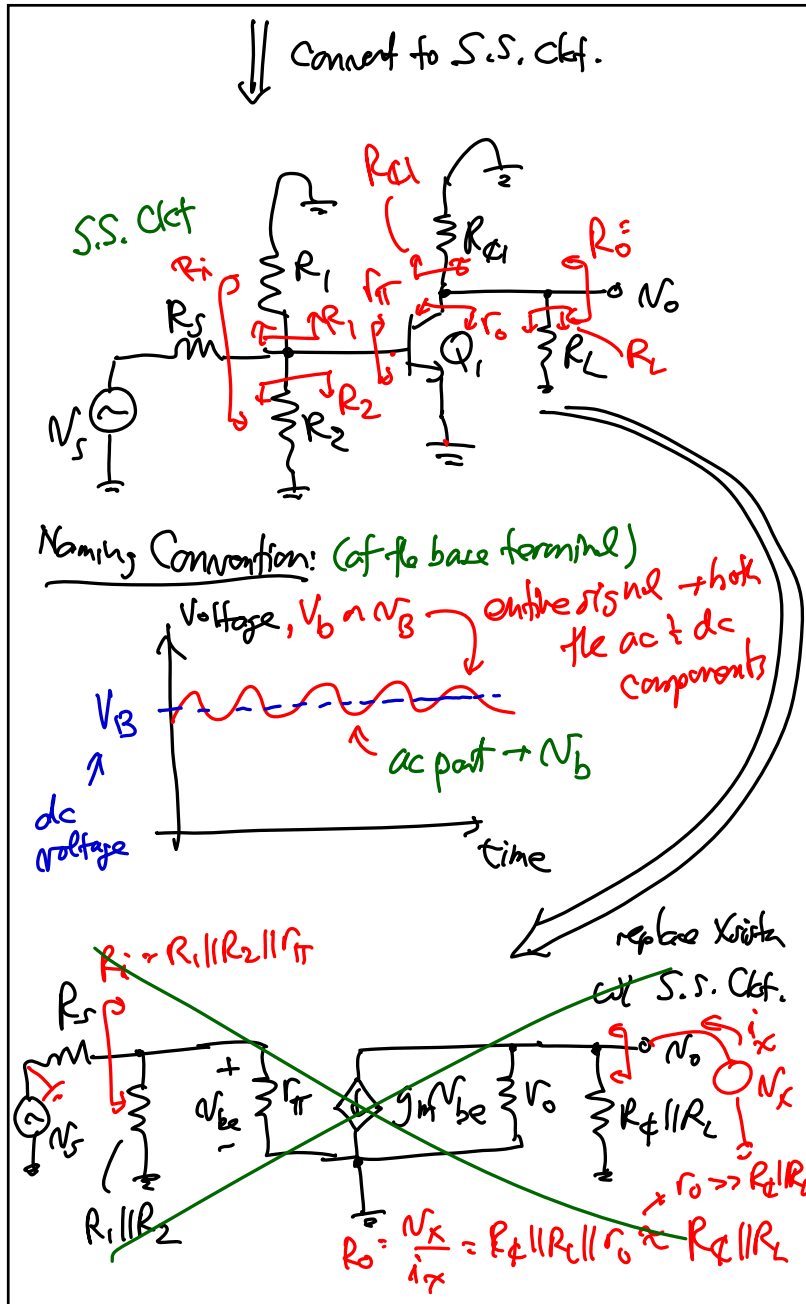 Convert to S.S. Ckt.
S.S. Ckt
R_C1
R_C1
R_1
R_i
R_S
R_1
r_π
r_o
R_o =
v_o
R_L
R_L
Q_1
R_2
R_2
v_s
Naming Convention: (at the base terminal)
Voltage, V_b or v_B
entire signal → both
the ac & dc
components
V_B
ac part → v_b
dc
voltage
time
replace Xsistor
w/ S.S. Ckt.
R_i = R_1||R_2||r_π
R_S
v_s
R_1||R_2
+
v_be
-
r_π
g_m v_be
r_o
R_C||R_L
v_o
i_x
v_x
r_o >> R_C||R_L
R_o = v_x/i_x = R_C||R_L||r_o ≈ R_C||R_L